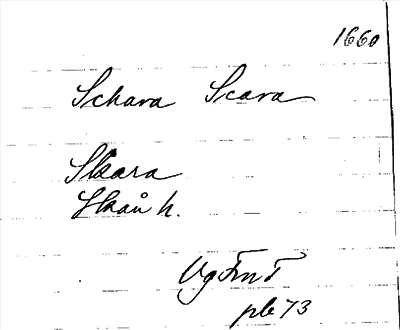 1660
Schara Scara
Skara
Skån h.
VgFmT
pl 73